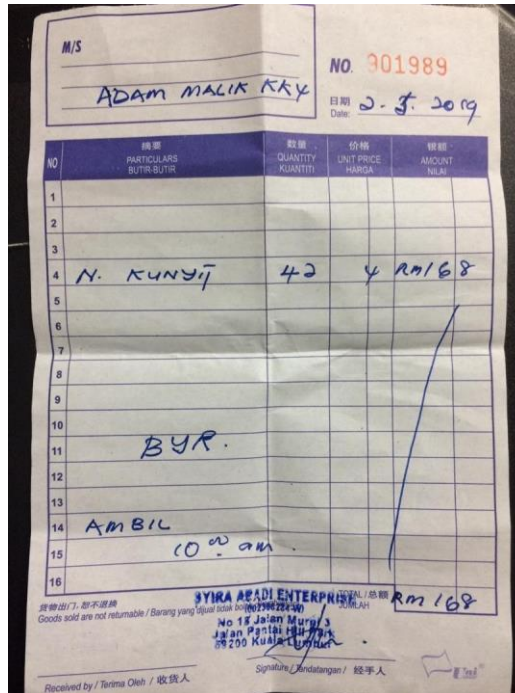 M/S
ADAM MALIK KKY
NO. 901989
日期 Date: 2. 3. 2019
NO 摘要 PARTICULARS BUTIR-BUTIR 数量 QUANTITY KUANTITI 价格 UNIT PRICE HARGA 银额 AMOUNT NILAI
1
2
3
4 N. KUNYIT 42 4 RM168
5
6
7
8
9
10
11 BYR.
12
13
14 AMBIL
15 10.00 am.
16
货物出门,恕不退换
Goods sold are not returnable / Barang yang dijual tidak
TOTAL / 总额 JUMLAH RM 168
SYIRA ABADI ENTERPRISE
No 15 Jalan Murni 3
Jalan Pantai Hill Park
59200 Kuala Lumpur
Received by / Terima Oleh / 收货人
Signature / Tandatangan / 经手人